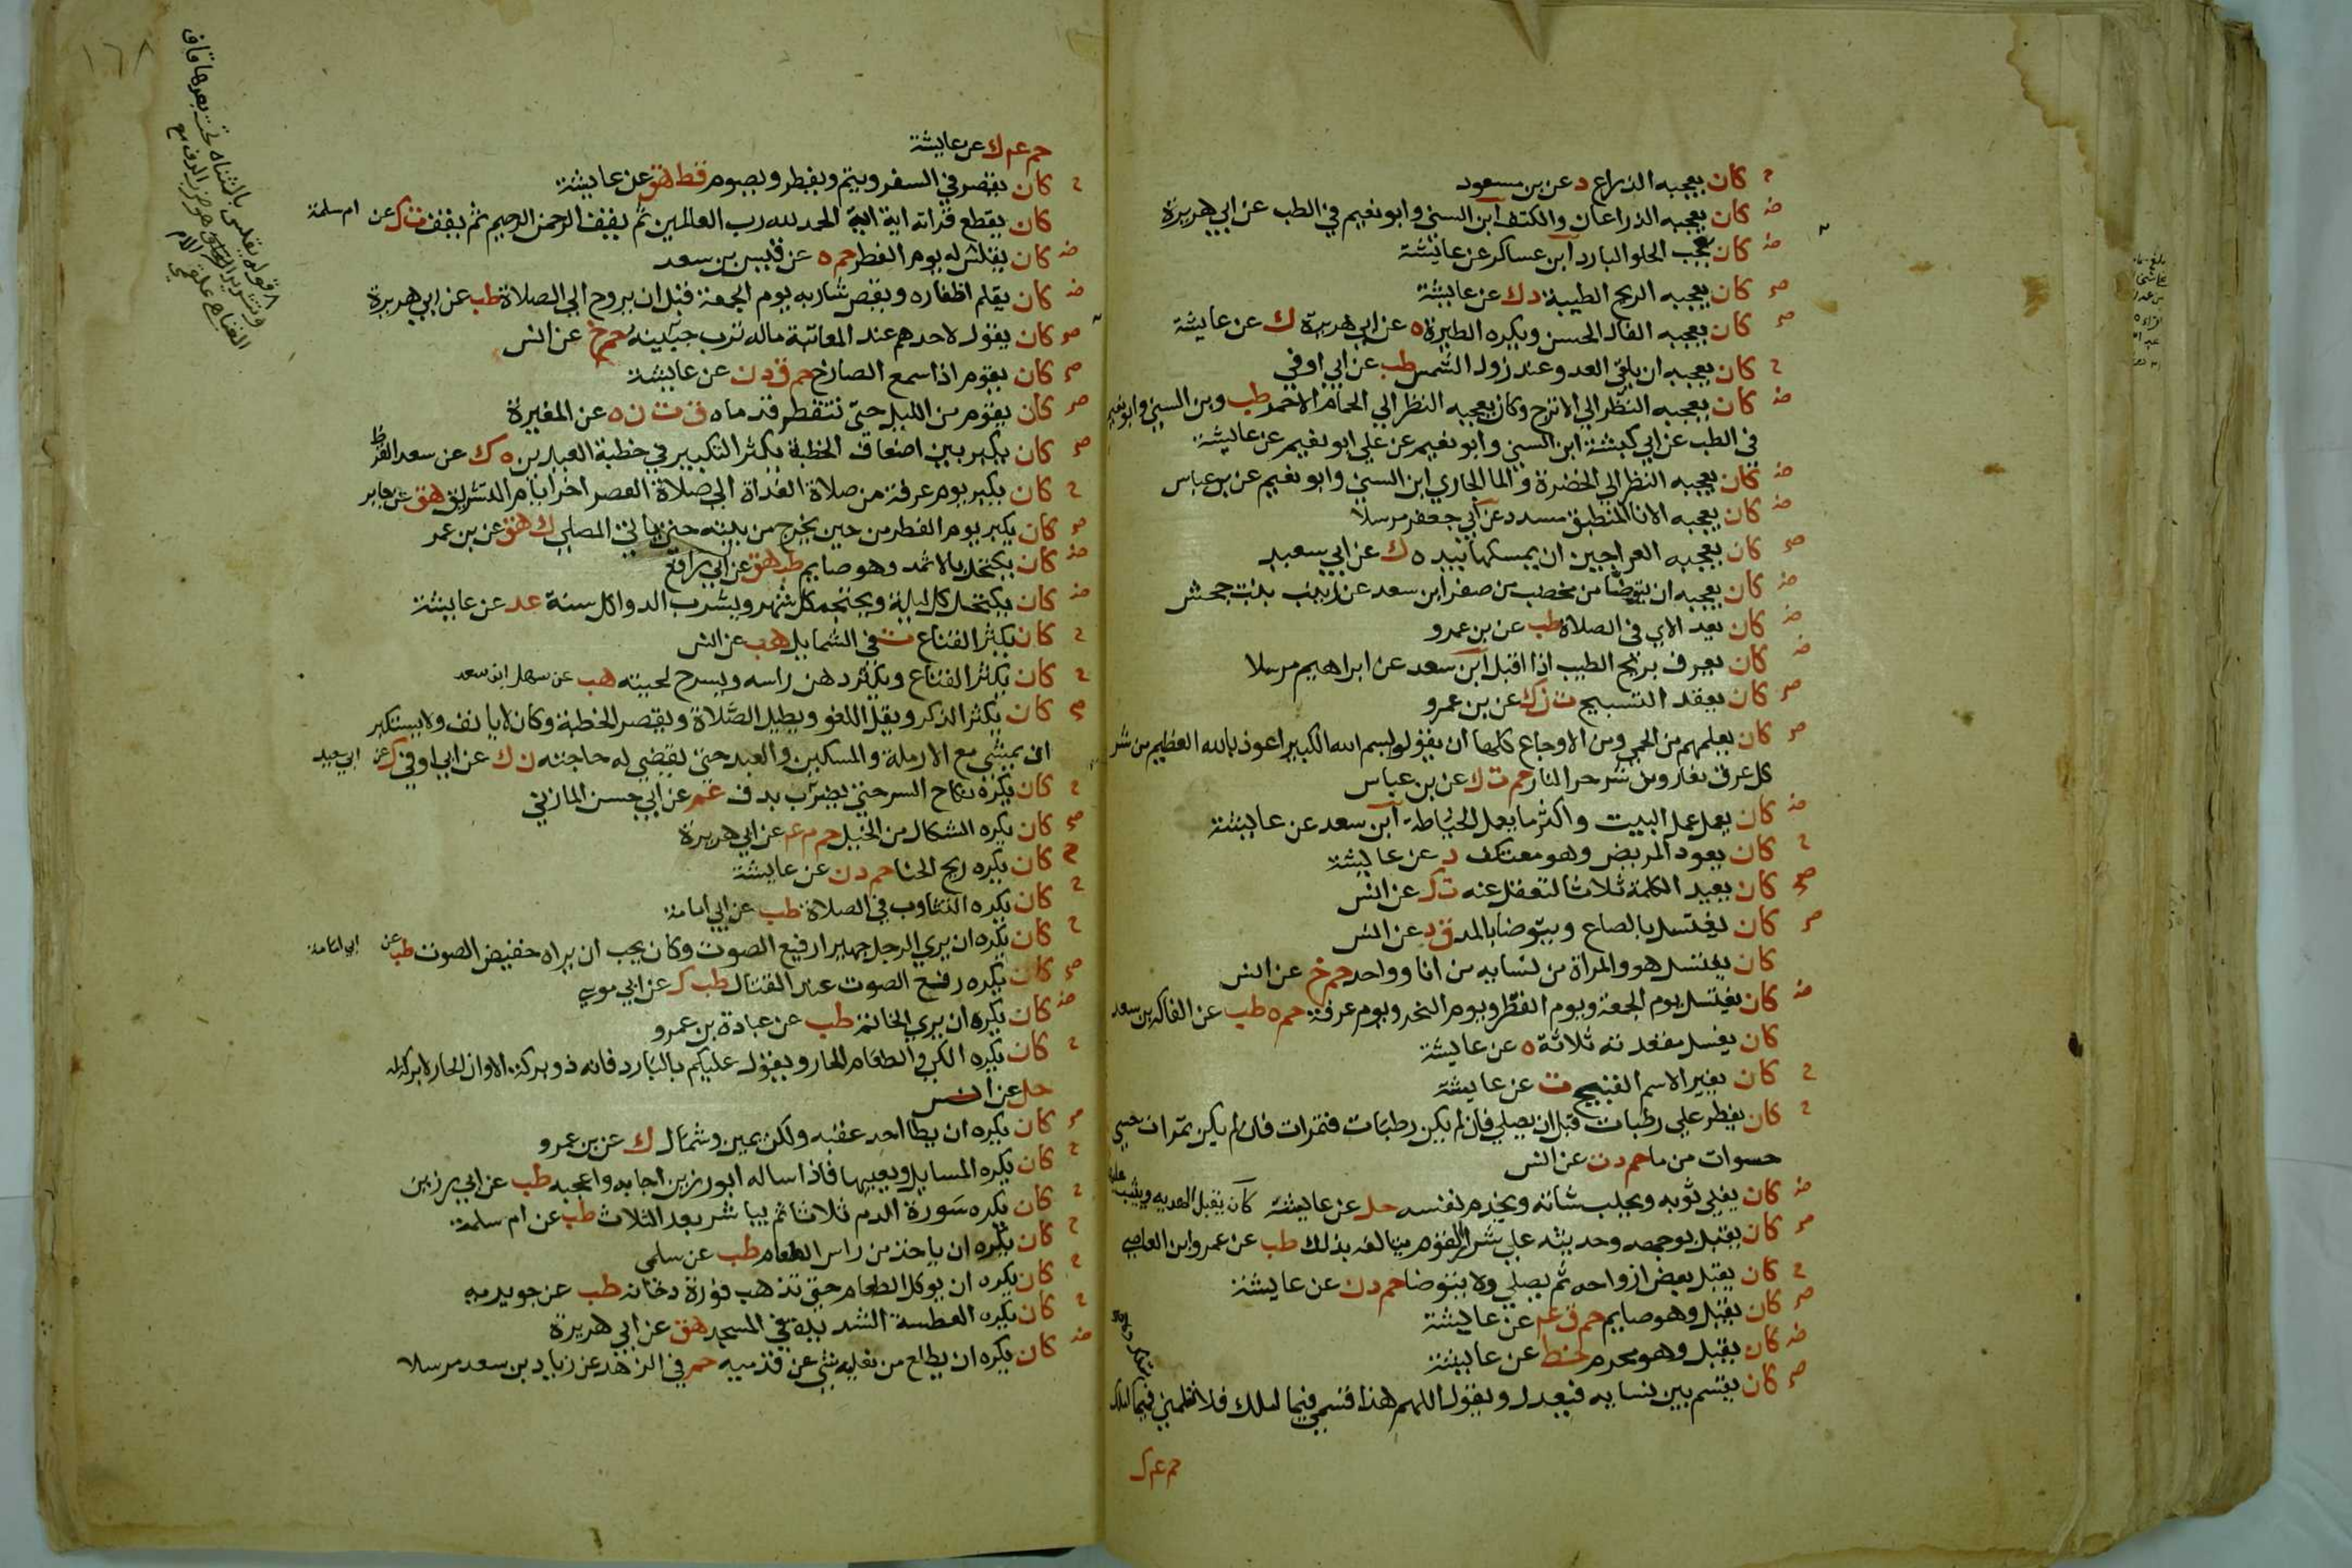 ح كان يعجبه الذراع د عن بن مسعود
ض كان يعجبه الذراعان والكتف ابن السني وابو نعيم في الطب عن ابي هريرة
ض كان يعجبه الحلو البارد ابن عساكر عن عايشة
صح كان يعجبه الريح الطيبة د ك عن عايشة
صح كان يعجبه الفال الحسن ويكره الطيرة ه عن ابي هريرة ك عن عايشة
ح كان يعجبه ان يلقى العدو عند زول الشمس طب عن ابي اوفي
ض كان يعجبه النظر الي الاترج وكان يعجبه النظر الي الحمام الاحمر طب وبن السني وابو نعيم
في الطب عن ابي كبشة ابن السني وابو نعيم عن علي ابو نعيم عن عايشة
ض كان يعجبه النظر الي الخضرة والما الجاري ابن السني وابو نعيم عن بن عباس
ض كان يعجبه الانا المنطبق مسدد عن ابي جعفر مرسلا
صح كان يعجبه العراجين ان يمسكها بيده ك عن ابي سعيد
ض كان يعجبه ان يتوضا من مخضب من صفر ابن سعد عن زينب بنت جحش
ض كان يعد الاي في الصلاة طب عن بن عمرو
ض كان يعرف بريح الطيب اذا اقبل ابن سعد عن ابراهيم مرسلا
صح كان يعقد التسبيح ت ن ك عن بن عمرو
صح كان يعلمهم من الحمي ومن الاوجاع كلها ان يقولوا بسم الله الكبير اعوذ بالله العظيم من شر
كل عرق نعار ومن شر حر النار حم ت ك عن بن عباس
ض كان يعمل عمل البيت واكثر ما يعمل الخياطة ابن سعد عن عايشة
ح كان يعود المريض وهو معتكف د عن عايشة
صح كان يعيد الكلمة ثلاثا لتعقل عنه ت ك عن انس
صح كان يغتسل بالصاع ويتوضا بالمد ق د عن انس
كان يغتسل هو والمراة من نسايه من انا وواحد حم خ عن انس
ض كان يغتسل يوم الجمعة ويوم الفطر ويوم النحر ويوم عرفة حم ه طب عن الفاكه بن سعد
كان يغسل مقعدته ثلاثة ه عن عايشة
ح كان يغير الاسم القبيح ت عن عايشة
ح كان يفطر علي رطبات قبل ان يصلي فان لم يكن رطبات فتمرات فان لم يكن تمرات حسي
حسوات من ما حم د ت عن انس
ض كان يفلي ثوبه ويحلب شاته ويخدم نفسه حل عن عايشة كان يقبل الهديه ويثيب عليها
صح كان يقبل بوجهه وحديثه علي شر القوم يتالفه بذلك طب عن عمرو ابن العاصي
ح كان يقبل بعض ازواجه ثم يصلي ولا يتوضا حم د ن عن عايشة
صح كان يقبل وهو صايم حم ق عم عن عايشة
ض كان يقبل وهو محرم خط عن عايشة
صح كان يقسم بين نسايه فيعدل ويقول اللهم هذا قسمي فيما املك فلا تلمني فيما تملك
حم عم ك
١٦٨
حم عم ك عن عايشة
ح كان يقصر في السفر ويتم ويفطر ويصوم قط هق عن عايشة
كان يقطع قراته اية اية الحمد لله رب العالمين ثم يقف الرحمن الرحيم ثم يقف ت ك عن ام سلمة
ض كان يقلس له يوم الفطر حم ه عن قيس بن سعد
ض كان يقلم اظفاره ويقص شاربه يوم الجمعة قبل ان يروح الي الصلاة طب عن ابي هريرة
صح كان يقول لاحدهم عند المعاتبة ماله ترب جبينه حم خ عن انس
صح كان يقوم اذا سمع الصارخ حم ق د ن عن عايشة
صح كان يقوم من الليل حتي تتفطر قدماه ق ت ن ه عن المغيرة
صح كان يكبر بين اضعاف الخطبة يكثر التكبير في خطبة العيدين ه ك عن سعد القرظ
ح كان يكبر يوم عرفة من صلاة الغداة الي صلاة العصر اخر ايام التشريق هق عن جابر
صح كان يكبر يوم الفطر من حين يخرج من بيته حتي ياتي المصلي ك هق عن بن عمر
ض كان يكتحل بالاثمد وهو صايم طب هق عن ابي رافع
ض كان يكتحل كل ليلة ويحتجم كل شهر ويشرب الدوا كل سنة عد عن عايشة
ح كان يكثر القناع ت في الشمايل هب عن انس
ح كان يكثر القناع ويكثر دهن راسه ويسرح لحيته هب عن سهل ابن سعد
صح كان يكثر الذكر ويقل اللغو ويطيل الصلاة ويقصر الخطبة وكان لا يانف ولا يستكبر
ان يمشي مع الارملة والمسكين والعبد حتي يقضي له حاجته ن ك عن ابي اوفي ك عن ابي سعيد
ح كان يكره نكاح السر حتي يضرب بدف عم عن ابي حسن المازني
صح كان يكره الشكال من الخيل حم م عم عن ابي هريرة
ح كان يكره ريح الحنا حم د ن عن عايشة
ح كان يكره التثاوب في الصلاة طب عن ابي امامة
ح كان يكره ان يري الرجل جهيرا رفيع الصوت وكان يحب ان يراه خفيض الصوت طب عن ابي امامة
صح كان يكره رفع الصوت عند القتال طب ك عن ابي موسي
ض كان يكره ان يري الخاتم طب عن عبادة بن عمرو
ح كان يكره الكي والطعام الحار ويقول عليكم بالبارد فانه ذو بركة الا وان الحار لا بركة له
حل عن انس
صح كان يكره ان يطا احد عقبه ولكن يمين وشمال ك عن بن عمرو
ح كان يكره المسايل ويعيبها فاذا ساله ابو رزين اجابه واعجبه طب عن ابي رزين
ح كان يكره سورة الدم ثلاثا ثم يباشر بعد الثلاث طب عن ام سلمة
ح كان يكره ان ياخذ من راس الطعام طب عن سلمي
ح كان يكره ان يوكل الطعام حتي تذهب فورة دخانه طب عن جويرية
ح كان يكره العطسة الشديدة في المسجد هق عن ابي هريرة
ض كان يكره ان يطلع من نعليه شي عن قدميه حم في الزهد عن زياد بن سعد مرسلا